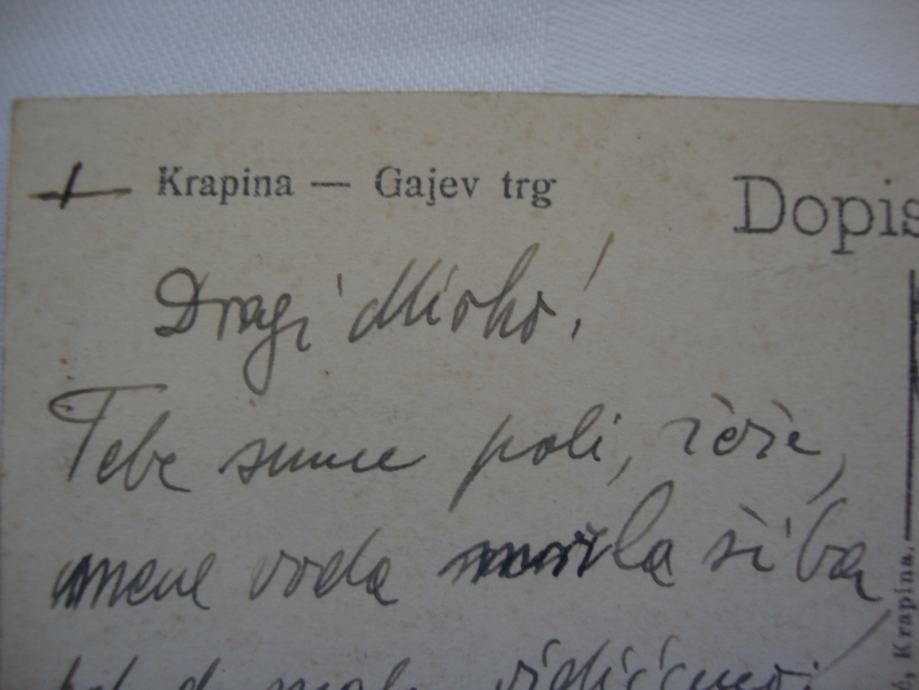 Krapina — Gajev trg
Dopis
Dragi Mirko!
Tebe sunce pali, žeže,
mene voda mrzla šiba
, Krapina.